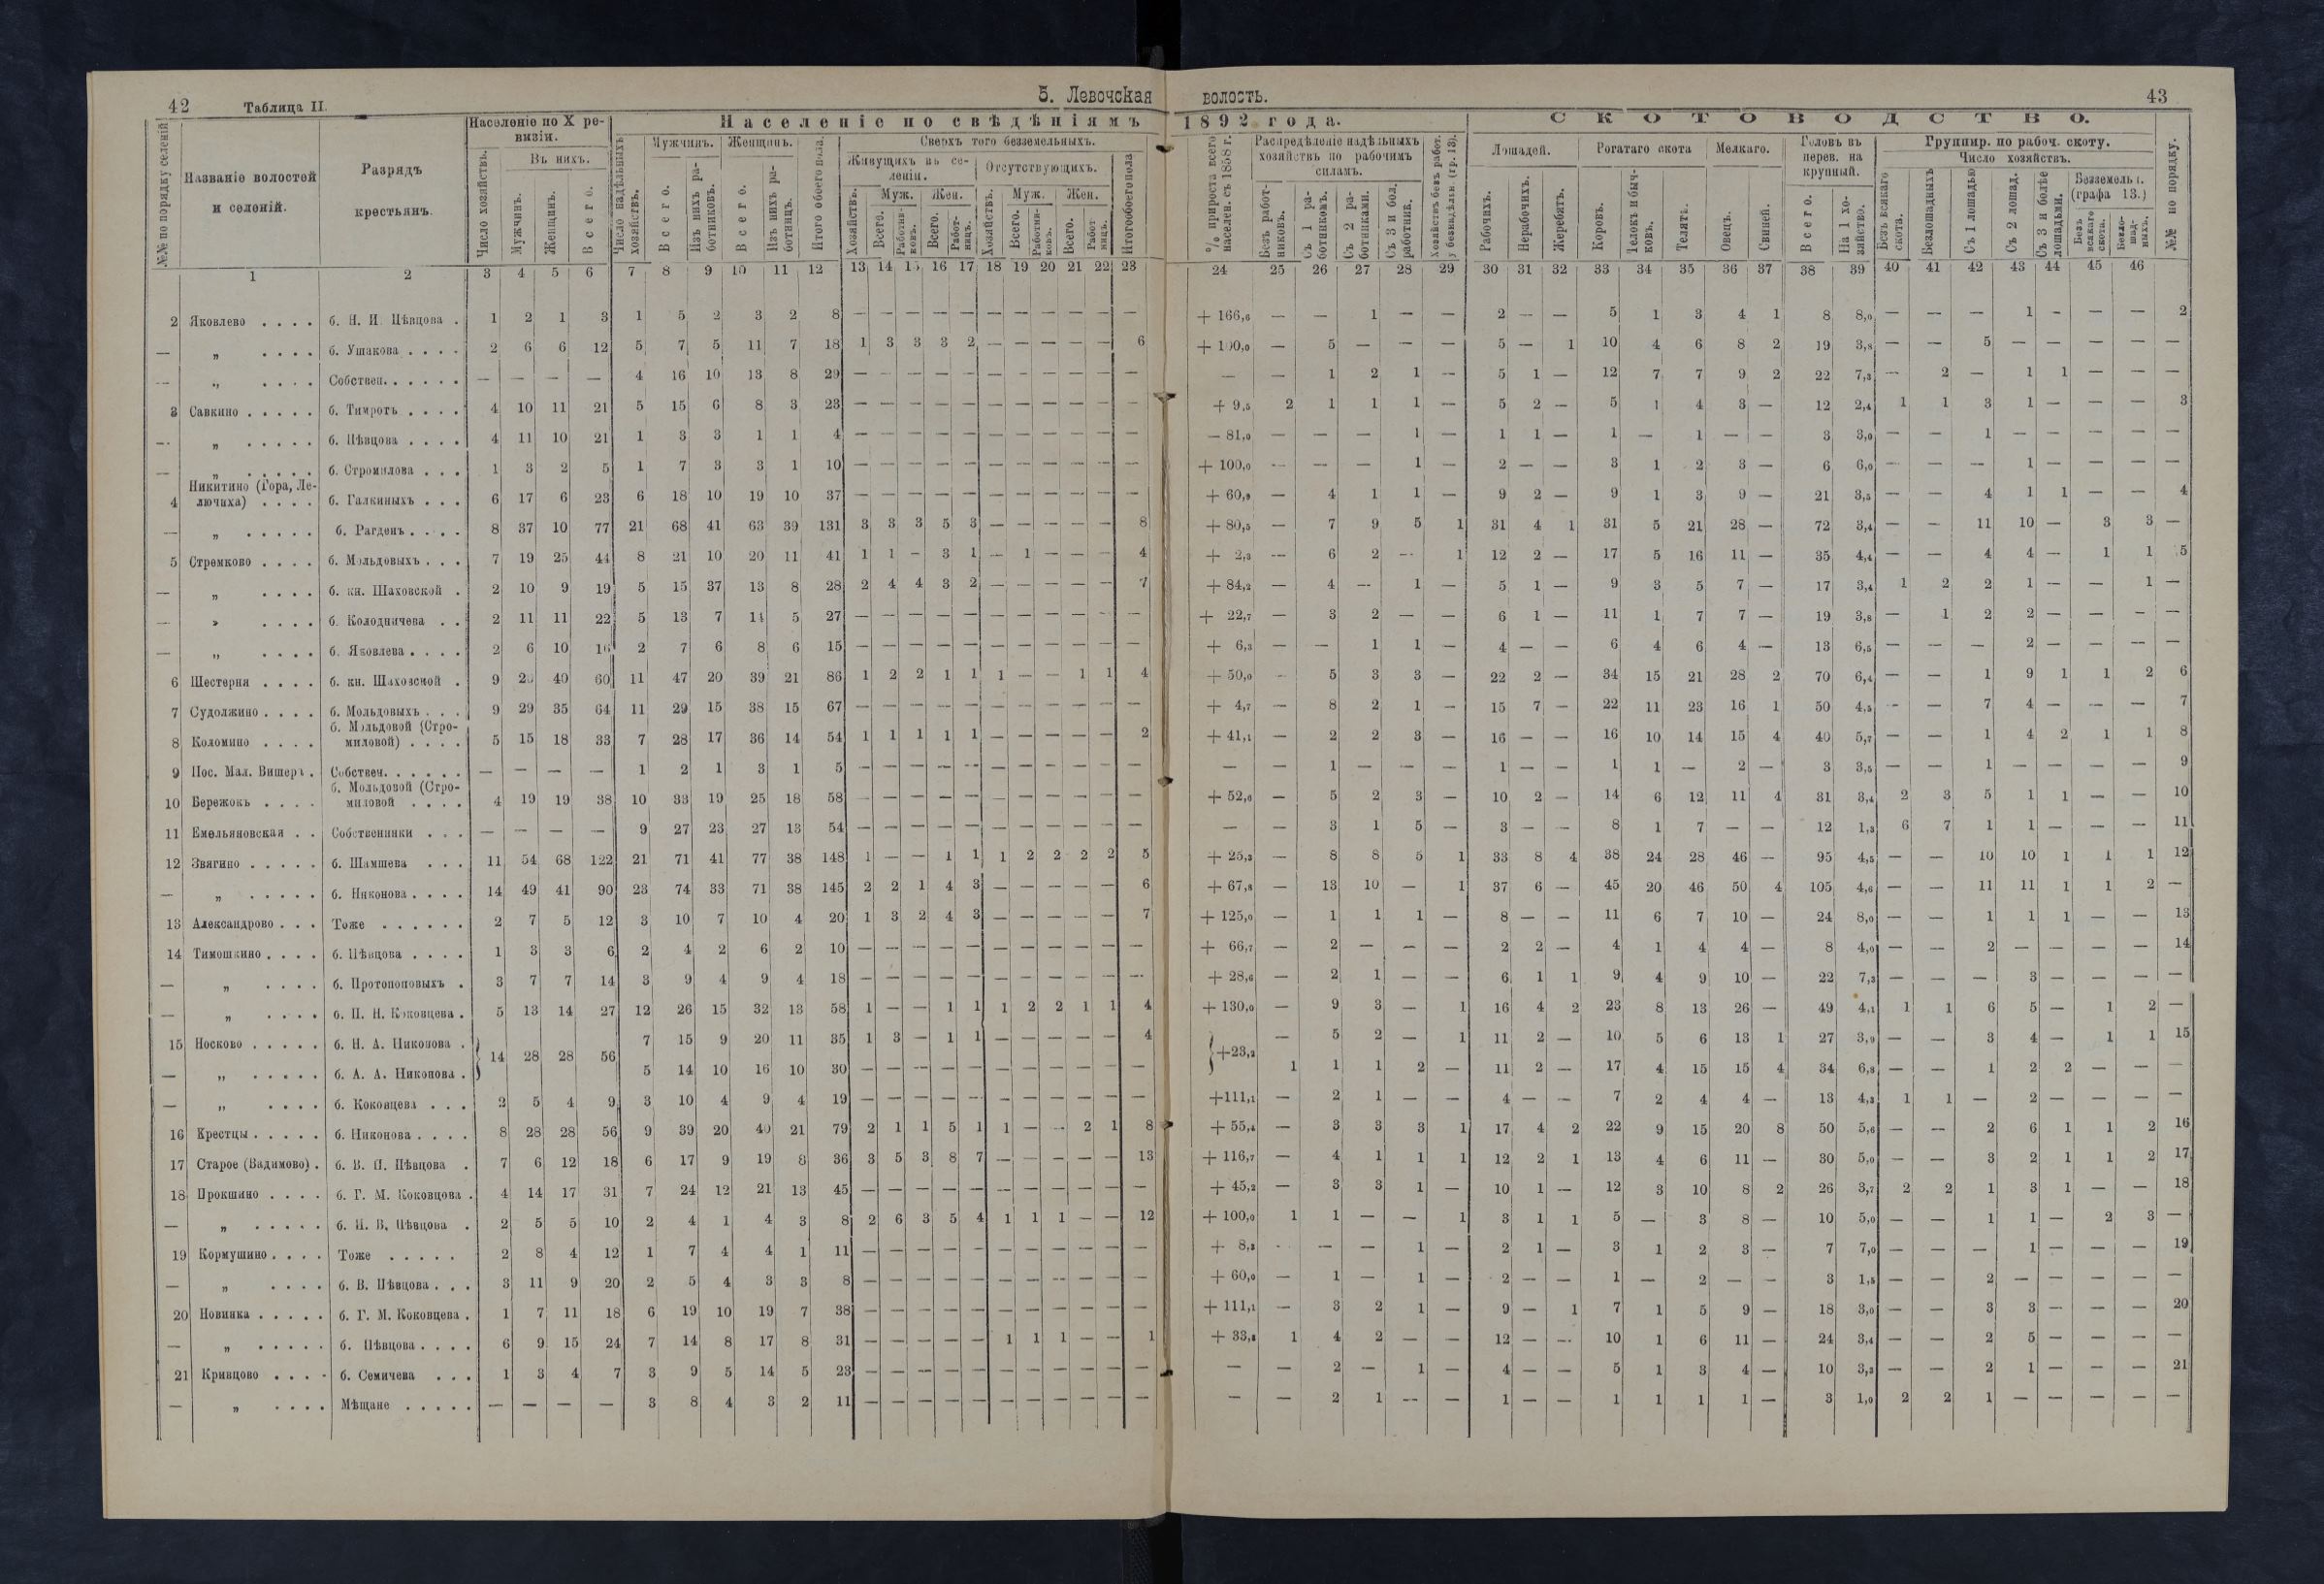 42 Таблица II. 5. Левочская волость. 43
№№ по порядку селеній
Названіе волостей и селеній.
Разрядъ крестьянъ.
Населеніе по X ревизіи.
Число хозяйствъ.
Въ нихъ.
Мужчинъ.
Женщинъ.
Всего.
Населеніе по свѣдѣніямъ 1892 года.
Число надѣльныхъ хозяйствъ.
Мужчинъ.
Всего.
Изъ нихъ работниковъ.
Женщинъ.
Всего.
Изъ нихъ работницъ.
Итого обоего пола.
Сверхъ того безземельныхъ.
Живущихъ въ селеніи.
Хозяйствъ.
Муж.
Всего.
Работниковъ.
Жен.
Всего.
Работницъ.
Отсутствующихъ.
Хозяйствъ.
Муж.
Всего.
Работниковъ.
Жен.
Всего.
Работницъ.
Итого обоего пола
% прироста всего населен. съ 1858 г.
Распредѣленіе надѣльныхъ хозяйствъ по рабочимъ силамъ.
Безъ работниковъ.
Съ 1 работникомъ.
Съ 2 работниками.
Съ 3 и бол. работник.
Хозяйствъ безъ работ. у безнадѣльн. (гр. 13).
СКОТОВОДСТВО.
Лошадей.
Рабочихъ.
Нерабочихъ.
Жеребятъ.
Рогатаго скота
Коровъ.
Телокъ и бычковъ.
Телятъ.
Мелкаго.
Овецъ.
Свиней.
Головъ въ перев. на крупный.
Всего.
На 1 хозяйство.
Группир. по рабоч. скоту.
Число хозяйствъ.
Безъ всякаго скота.
Безлошадныхъ
Съ 1 лошадью
Съ 2 лошад.
Съ 3 и болѣе лошадьми.
Безземельн. (графа 13.)
Безъ всякаго скота.
Безлошадныхъ.
№№ по порядку.
1 2 3 4 5 6 7 8 9 10 11 12 13 14 15 16 17 18 19 20 21 22 23 24 25 26 27 28 29 30 31 32 33 34 35 36 37 38 39 40 41 42 43 44 45 46
2 Яковлево . . . . б. Н. И. Пѣвцова . 1 2 1 3 1 5 2 3 2 8 — — — — — — — — — — — + 166,6 — — 1 — — 2 — — 5 1 3 4 1 8 8,0 — — — 1 — — — 2
— „ . . . . б. Ушакова . . . . 2 6 6 12 5 7 5 11 7 18 1 3 3 3 2 — — — — — 6 + 100,0 — 5 — — — 5 — 1 10 4 6 8 2 19 3,8 — — 5 — — — — —
— „ . . . . Собствен. . . . . . — — — — 4 16 10 13 8 29 — — — — — — — — — — — — — 1 2 1 — 5 1 — 12 7 7 9 2 22 7,3 — 2 — 1 1 — — —
3 Савкино . . . . . б. Тимротъ . . . . 4 10 11 21 5 15 6 8 3 23 — — — — — — — — — — — + 9,5 2 1 1 1 — 5 2 — 5 1 4 3 — 12 2,4 1 1 3 1 — — — 3
— „ . . . . . б. Пѣвцова . . . . 4 11 10 21 1 3 3 1 1 4 — — — — — — — — — — — — 81,0 — — — 1 — 1 1 — 1 — 1 — — 3 3,0 — — 1 — — — — —
— „ . . . . . б. Стромилова . . . 1 3 2 5 1 7 3 3 1 10 — — — — — — — — — — — + 100,0 — — — 1 — 2 — — 3 1 2 3 — 6 6,0 — — — 1 — — — —
4 Никитино (Гора, Лелючиха) . . . . б. Галкиныхъ . . . 6 17 6 23 6 18 10 19 10 37 — — — — — — — — — — — + 60,9 — 4 1 1 — 9 2 — 9 1 3 9 — 21 3,5 — — 4 1 1 — — 4
— „ . . . . . б. Рагденъ . . . . 8 37 10 77 21 68 41 63 39 131 3 3 3 5 3 — — — — — 8 + 80,5 — 7 9 5 1 31 4 1 31 5 21 28 — 72 3,4 — — 11 10 — 3 3 —
5 Стремково . . . . б. Мольдовыхъ . . . 7 19 25 44 8 21 10 20 11 41 1 1 — 3 1 — 1 — — — 4 + 2,3 — 6 2 — 1 12 2 — 17 5 16 11 — 35 4,4 — — 4 4 — 1 1 5
— „ . . . . б. кн. Шаховской . 2 10 9 19 5 15 37 13 8 28 2 4 4 3 2 — — — — — 7 + 84,2 — 4 — 1 — 5 1 — 9 3 5 7 — 17 3,4 1 2 2 1 — — 1 —
— „ . . . . б. Колодничева . . 2 11 11 22 5 13 7 14 5 27 — — — — — — — — — — — + 22,7 — 3 2 — — 6 1 — 11 1 7 7 — 19 3,8 — 1 2 2 — — — —
— „ . . . . б. Яковлева . . . . 2 6 10 16 2 7 6 8 6 15 — — — — — — — — — — — + 6,3 — — 1 1 — 4 — — 6 4 6 4 — 13 6,5 — — — 2 — — — —
6 Шестерня . . . . б. кн. Шаховской . 9 20 40 60 11 47 20 39 21 86 1 2 2 1 1 1 — — 1 1 4 + 50,0 — 5 3 3 — 22 2 — 34 15 21 28 2 70 6,4 — — 1 9 1 1 2 6
7 Судолжино . . . . б. Мольдовыхъ . . . 9 29 35 64 11 29 15 38 15 67 — — — — — — — — — — — + 4,7 — 8 2 1 — 15 7 — 22 11 23 16 1 50 4,5 — — 7 4 — — — 7
8 Коломино . . . . б. Мольдовой (Стромиловой) . . . . 5 15 18 33 7 28 17 36 14 54 1 1 1 1 1 — — — — — 2 + 41,1 — 2 2 3 — 16 — — 16 10 14 15 4 40 5,7 — — 1 4 2 1 1 8
9 Пос. Мал. Вишера . Собствен. . . . . . — — — — 1 2 1 3 1 5 — — — — — — — — — — — — — 1 — — — 1 — — 1 1 — 2 — 3 3,5 — — 1 — — — — 9
10 Бережокъ . . . . б. Мольдовой (Стромиловой . . . . 4 19 19 38 10 33 19 25 18 58 — — — — — — — — — — — + 52,6 — 5 2 3 — 10 2 — 14 6 12 11 4 31 3,4 2 3 5 1 1 — — 10
11 Емельяновская . . Собственники . . . — — — — 9 27 23 27 13 54 — — — — — — — — — — — — — 3 1 5 — 3 — — 8 1 7 — — 12 1,3 6 7 1 1 — — — 11
12 Звягино . . . . . б. Шамшева . . . 11 54 68 122 21 71 41 77 38 148 1 — — 1 1 1 2 2 2 2 5 + 25,3 — 8 8 5 1 33 8 4 38 24 28 46 — 95 4,5 — — 10 10 1 1 1 12
— „ . . . . . б. Никонова . . . . 14 49 41 90 23 74 33 71 38 145 2 2 1 4 3 — — — — — 6 + 67,8 — 13 10 — 1 37 6 — 45 20 46 50 4 105 4,6 — — 11 11 1 1 2 —
13 Александрово . . . Тоже . . . . . . 2 7 5 12 3 10 7 10 4 20 1 3 2 4 3 — — — — — 7 + 125,0 — 1 1 1 — 8 — — 11 6 7 10 — 24 8,0 — — 1 1 1 — — 13
14 Тимошкино . . . . б. Пѣвцова . . . . 1 3 3 6 2 4 2 6 2 10 — — — — — — — — — — — + 66,7 — 2 — — — 2 2 — 4 1 4 4 — 8 4,0 — — 2 — — — — 14
— „ . . . . б. Протопоповыхъ . 3 7 7 14 3 9 4 9 4 18 — — — — — — — — — — — + 28,6 — 2 1 — — 6 1 1 9 4 9 10 — 22 7,3 — — — 3 — — — —
— „ . . . . б. П. Н. Коковцева . 5 13 14 27 12 26 15 32 13 58 1 — — 1 1 1 2 2 1 1 4 + 130,0 — 9 3 — 1 16 4 2 23 8 13 26 — 49 4,1 1 1 6 5 — 1 2 —
15 Носково . . . . . б. Н. А. Никонова . } 14 28 28 56 7 15 9 20 11 35 1 3 — 1 1 — — — — — 4 } +23,2 — 5 2 — 1 11 2 — 10 5 6 13 1 27 3,9 — — 3 4 — 1 1 15
— „ . . . . . б. А. А. Никонова . 5 14 10 16 10 30 — — — — — — — — — — — 1 1 1 2 — 11 2 — 17 4 15 15 4 34 6,8 — — 1 2 2 — — —
— „ . . . . б. Коковцева . . . 2 5 4 9 3 10 4 9 4 19 — — — — — — — — — — — +111,1 — 2 1 — — 4 — — 7 2 4 4 — 13 4,3 1 1 — 2 — — — —
16 Крестцы . . . . . б. Никонова . . . . 8 28 28 56 9 39 20 40 21 79 2 1 1 5 1 1 — — 2 1 8 + 55,4 — 3 3 3 1 17 4 2 22 9 15 20 8 50 5,6 — — 2 6 1 1 2 16
17 Старое (Вадимово) . б. В. П. Пѣвцова . 7 6 12 18 6 17 9 19 8 36 3 5 3 8 7 — — — — — 13 + 116,7 — 4 1 1 1 12 2 1 13 4 6 11 — 30 5,0 — — 3 2 1 1 2 17
18 Прокшино . . . . б. Г. М. Коковцова . 4 14 17 31 7 24 12 21 13 45 — — — — — — — — — — — + 45,2 — 3 3 1 — 10 1 — 12 3 10 8 2 26 3,7 2 2 1 3 1 — — 18
— „ . . . . . б. И. В. Пѣвцова . 2 5 5 10 2 4 1 4 3 8 2 6 3 5 4 1 1 1 — — 12 + 100,0 1 1 — — 1 3 1 1 5 — 3 8 — 10 5,0 — — 1 1 — 2 3 —
19 Кормушино . . . . Тоже . . . . . 2 8 4 12 1 7 4 4 1 11 — — — — — — — — — — — + 8,3 — — — 1 — 2 1 — 3 1 2 3 — 7 7,0 — — — 1 — — — 19
— „ . . . . б. В. Пѣвцова . . . 3 11 9 20 2 5 4 3 3 8 — — — — — — — — — — — + 60,0 — 1 — 1 — 2 — — 1 — 2 — — 3 1,5 — — 2 — — — — —
20 Новинка . . . . . б. Г. М. Коковцева . 1 7 11 18 6 19 10 19 7 38 — — — — — — — — — — — + 111,1 — 3 2 1 — 9 — 1 7 1 5 9 — 18 3,0 — — 3 3 — — — 20
— „ . . . . . б. Пѣвцова . . . . 6 9 15 24 7 14 8 17 8 31 — — — — — 1 1 1 — — 1 + 33,8 1 4 2 — — 12 — — 10 1 6 11 — 24 3,4 — — 2 5 — — — —
21 Кривцово . . . . б. Семичева . . . 1 3 4 7 3 9 5 14 5 23 — — — — — — — — — — — — — 2 — 1 — 4 — — 5 1 3 4 — 10 3,3 — — 2 1 — — — 21
— „ . . . . Мѣщане . . . . . — — — — 3 8 4 3 2 11 — — — — — — — — — — — — — 2 1 — — 1 — — 1 1 1 1 — 3 1,0 2 2 1 — — — — —